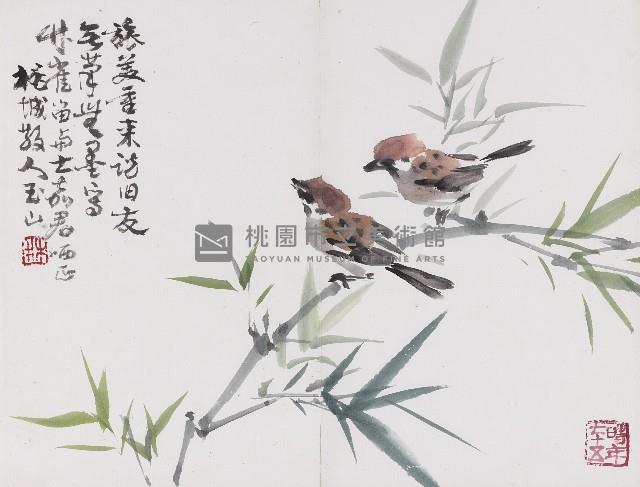 旅美重来訪旧友
筆無墨寫
竹雀留与士嘉君哂正
桃城散人玉山
桃園市立美術館
TAOYUAN MUSEUM OF FINE ARTS